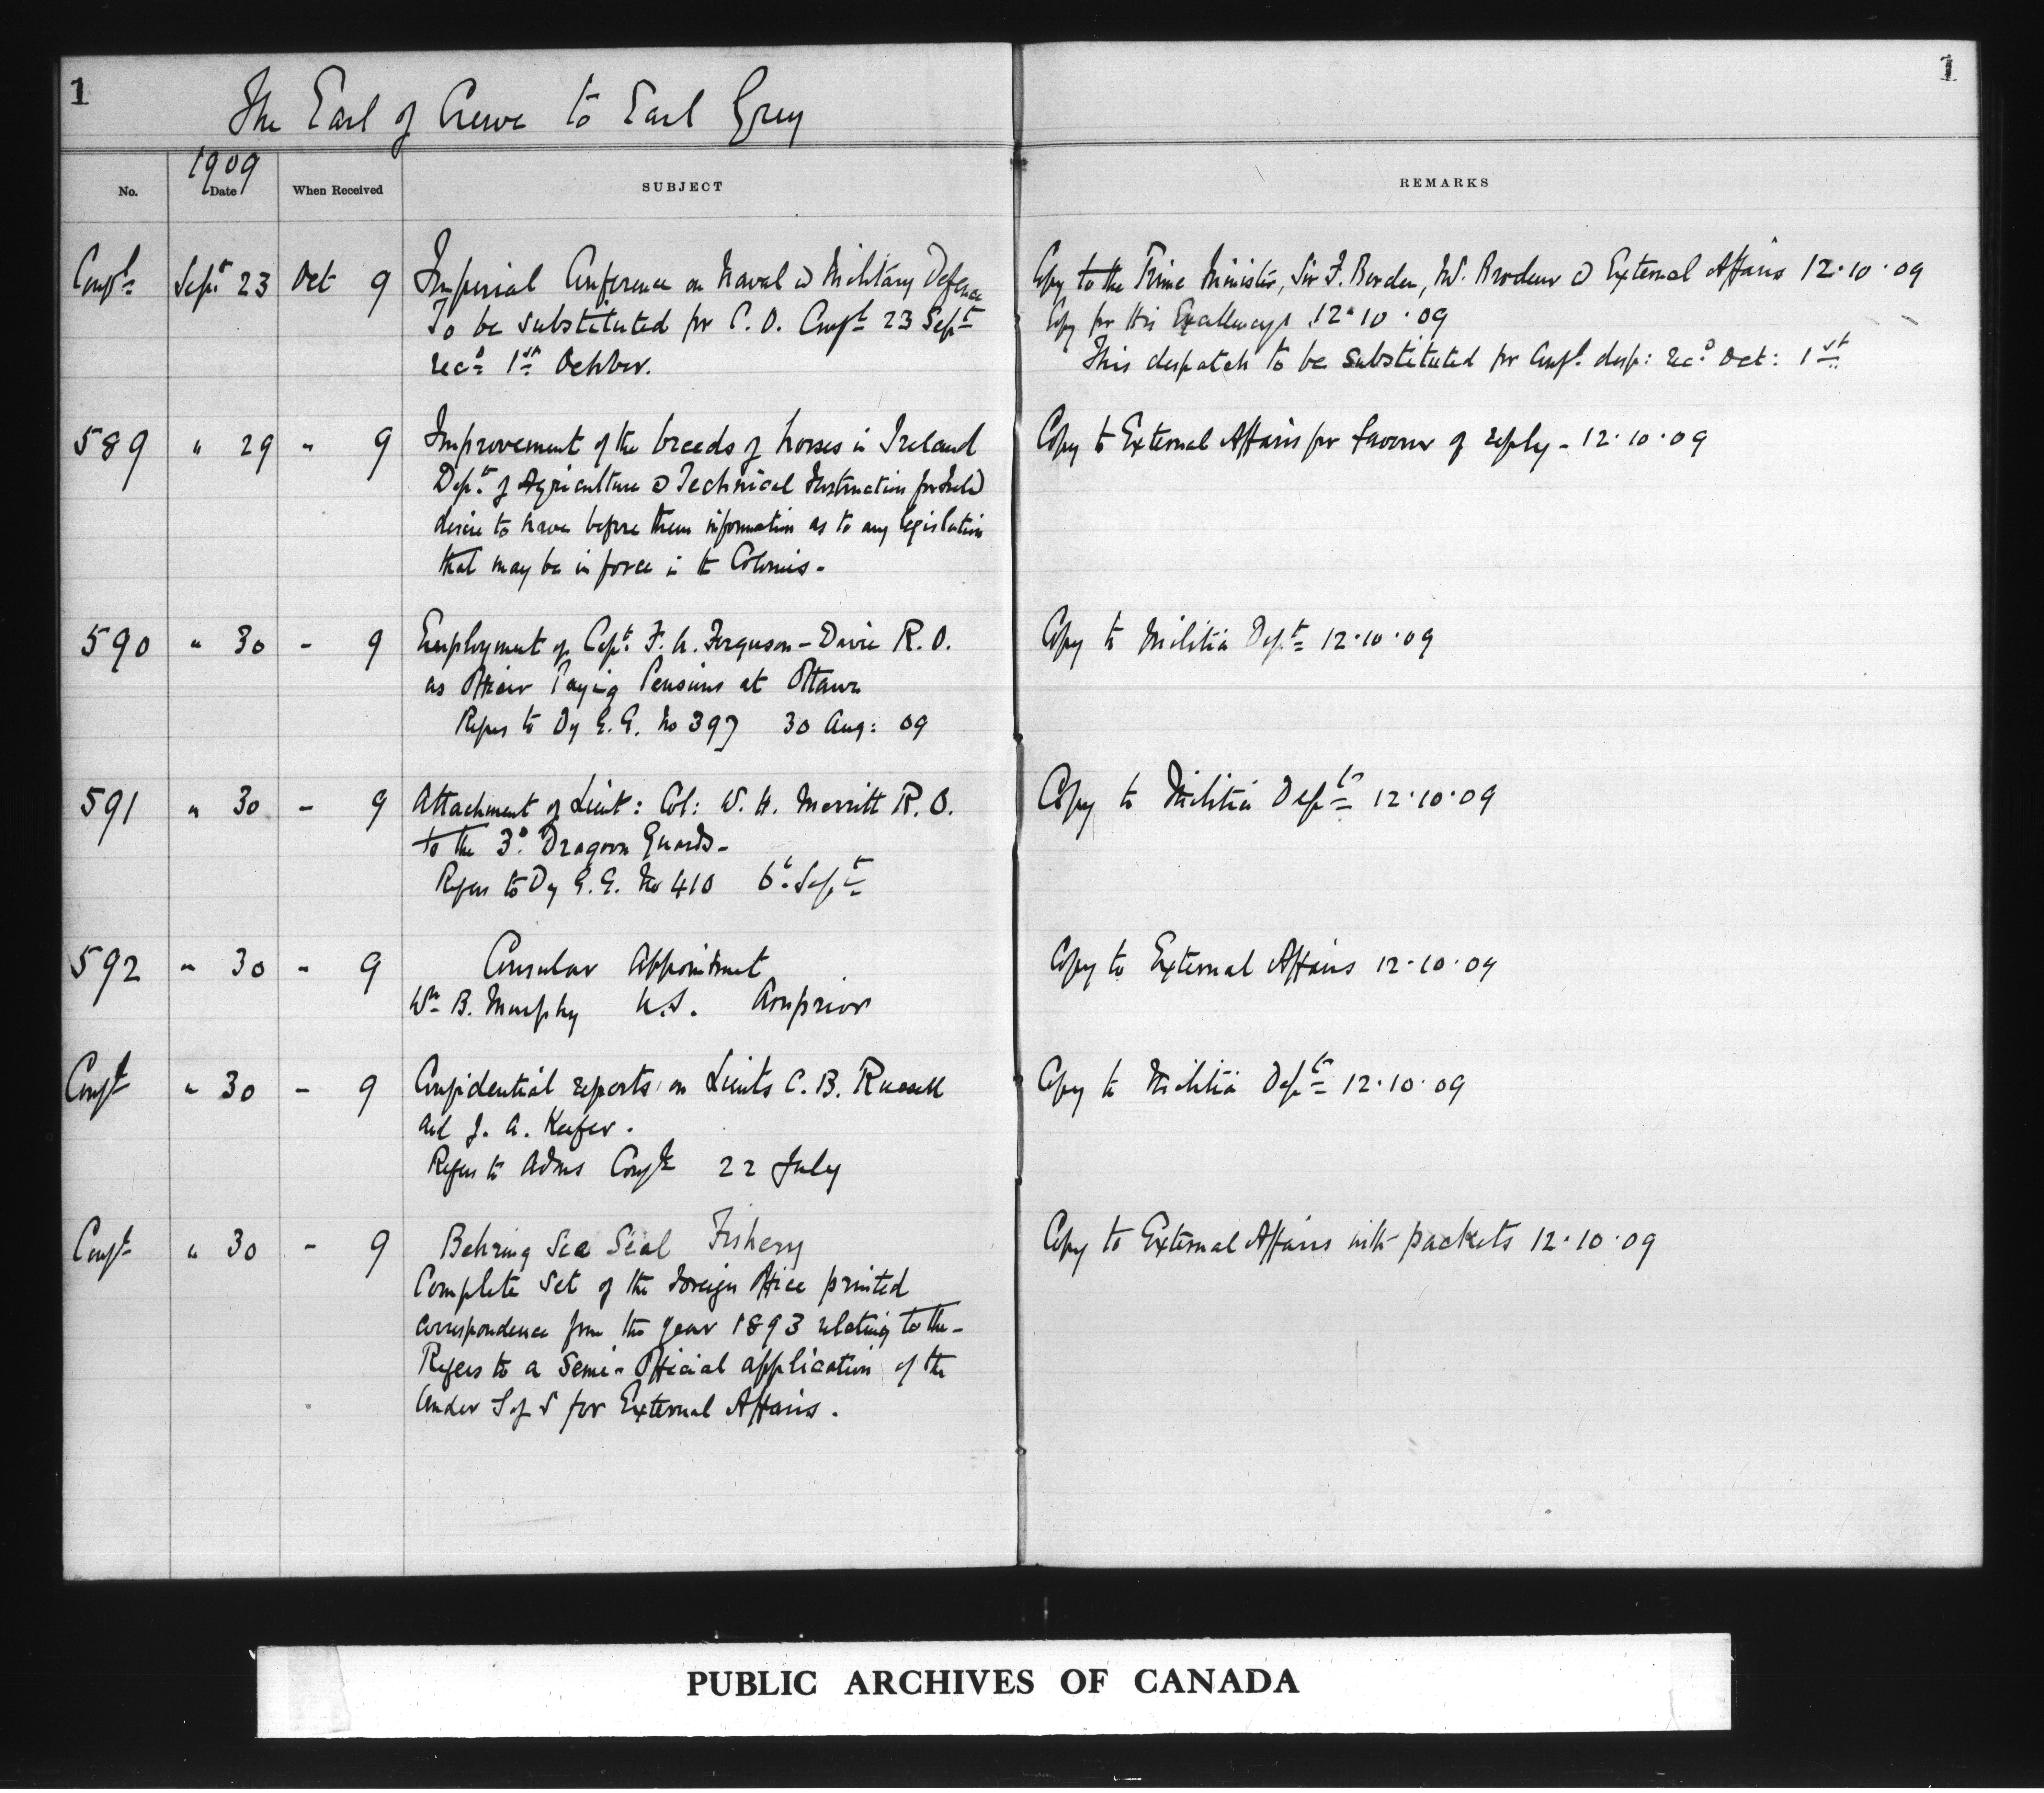 1
1
The Earl of Crewe to Earl Grey
1909
No. Date When Received SUBJECT REMARKS
Confl Sept 23 Oct 9 Imperial Conference on Naval & Military Defence Copy to the Prime Minister, Sir F. Borden, Mr. Brodeur & External Affairs 12.10.09
To be substituted for C.O. Confl 23 Sept Copy for His Excellency 12.10.09
recd 1st October. This despatch to be substituted for Confl. desp: recd Oct: 1st
589 " 29 " 9 Improvement of the breeds of horses in Ireland Copy to External Affairs for favour of reply - 12.10.09
Dept. of Agriculture & Technical Instruction for Ireld
desire to have before them information as to any legislation
that may be in force in the Colonies.
590 " 30 - 9 Employment of Capt. F. A. Ferguson-Davie R.O. Copy to Militia Dept 12.10.09
as Officer Paying Pensions at Ottawa
Refers to Dy G.G. No 397 30 Aug: 09
591 " 30 - 9 Attachment of Lieut: Col: W. H. Merritt R.O. Copy to Militia Dept 12.10.09
to the 3d. Dragoon Guards -
Refers to Dy G.G. No 410 6t. Sept
592 " 30 - 9 Consular Appointment Copy to External Affairs 12.10.09
Wm B. Murphy U.S. Arnprior
Confl " 30 - 9 Confidential reports on Lieuts C. B. Russell Copy to Militia Dept 12.10.09
and J. A. Keefer.
Refers to Adms Confl 22 July
Confl " 30 - 9 Behring Sea Seal Fishery Copy to External Affairs with packets 12.10.09
Complete set of the Foreign Office printed
correspondence from the year 1893 relating to the -
Refers to a semi-official application of the
Under S of S for External Affairs.
PUBLIC ARCHIVES OF CANADA